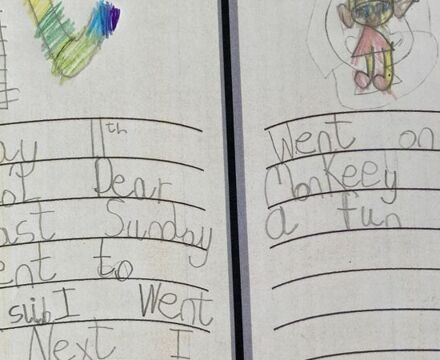 ay 11th
Dear
ast Sunday
ent to
slib I Went
Next I
Went on
Monkeey
a fun